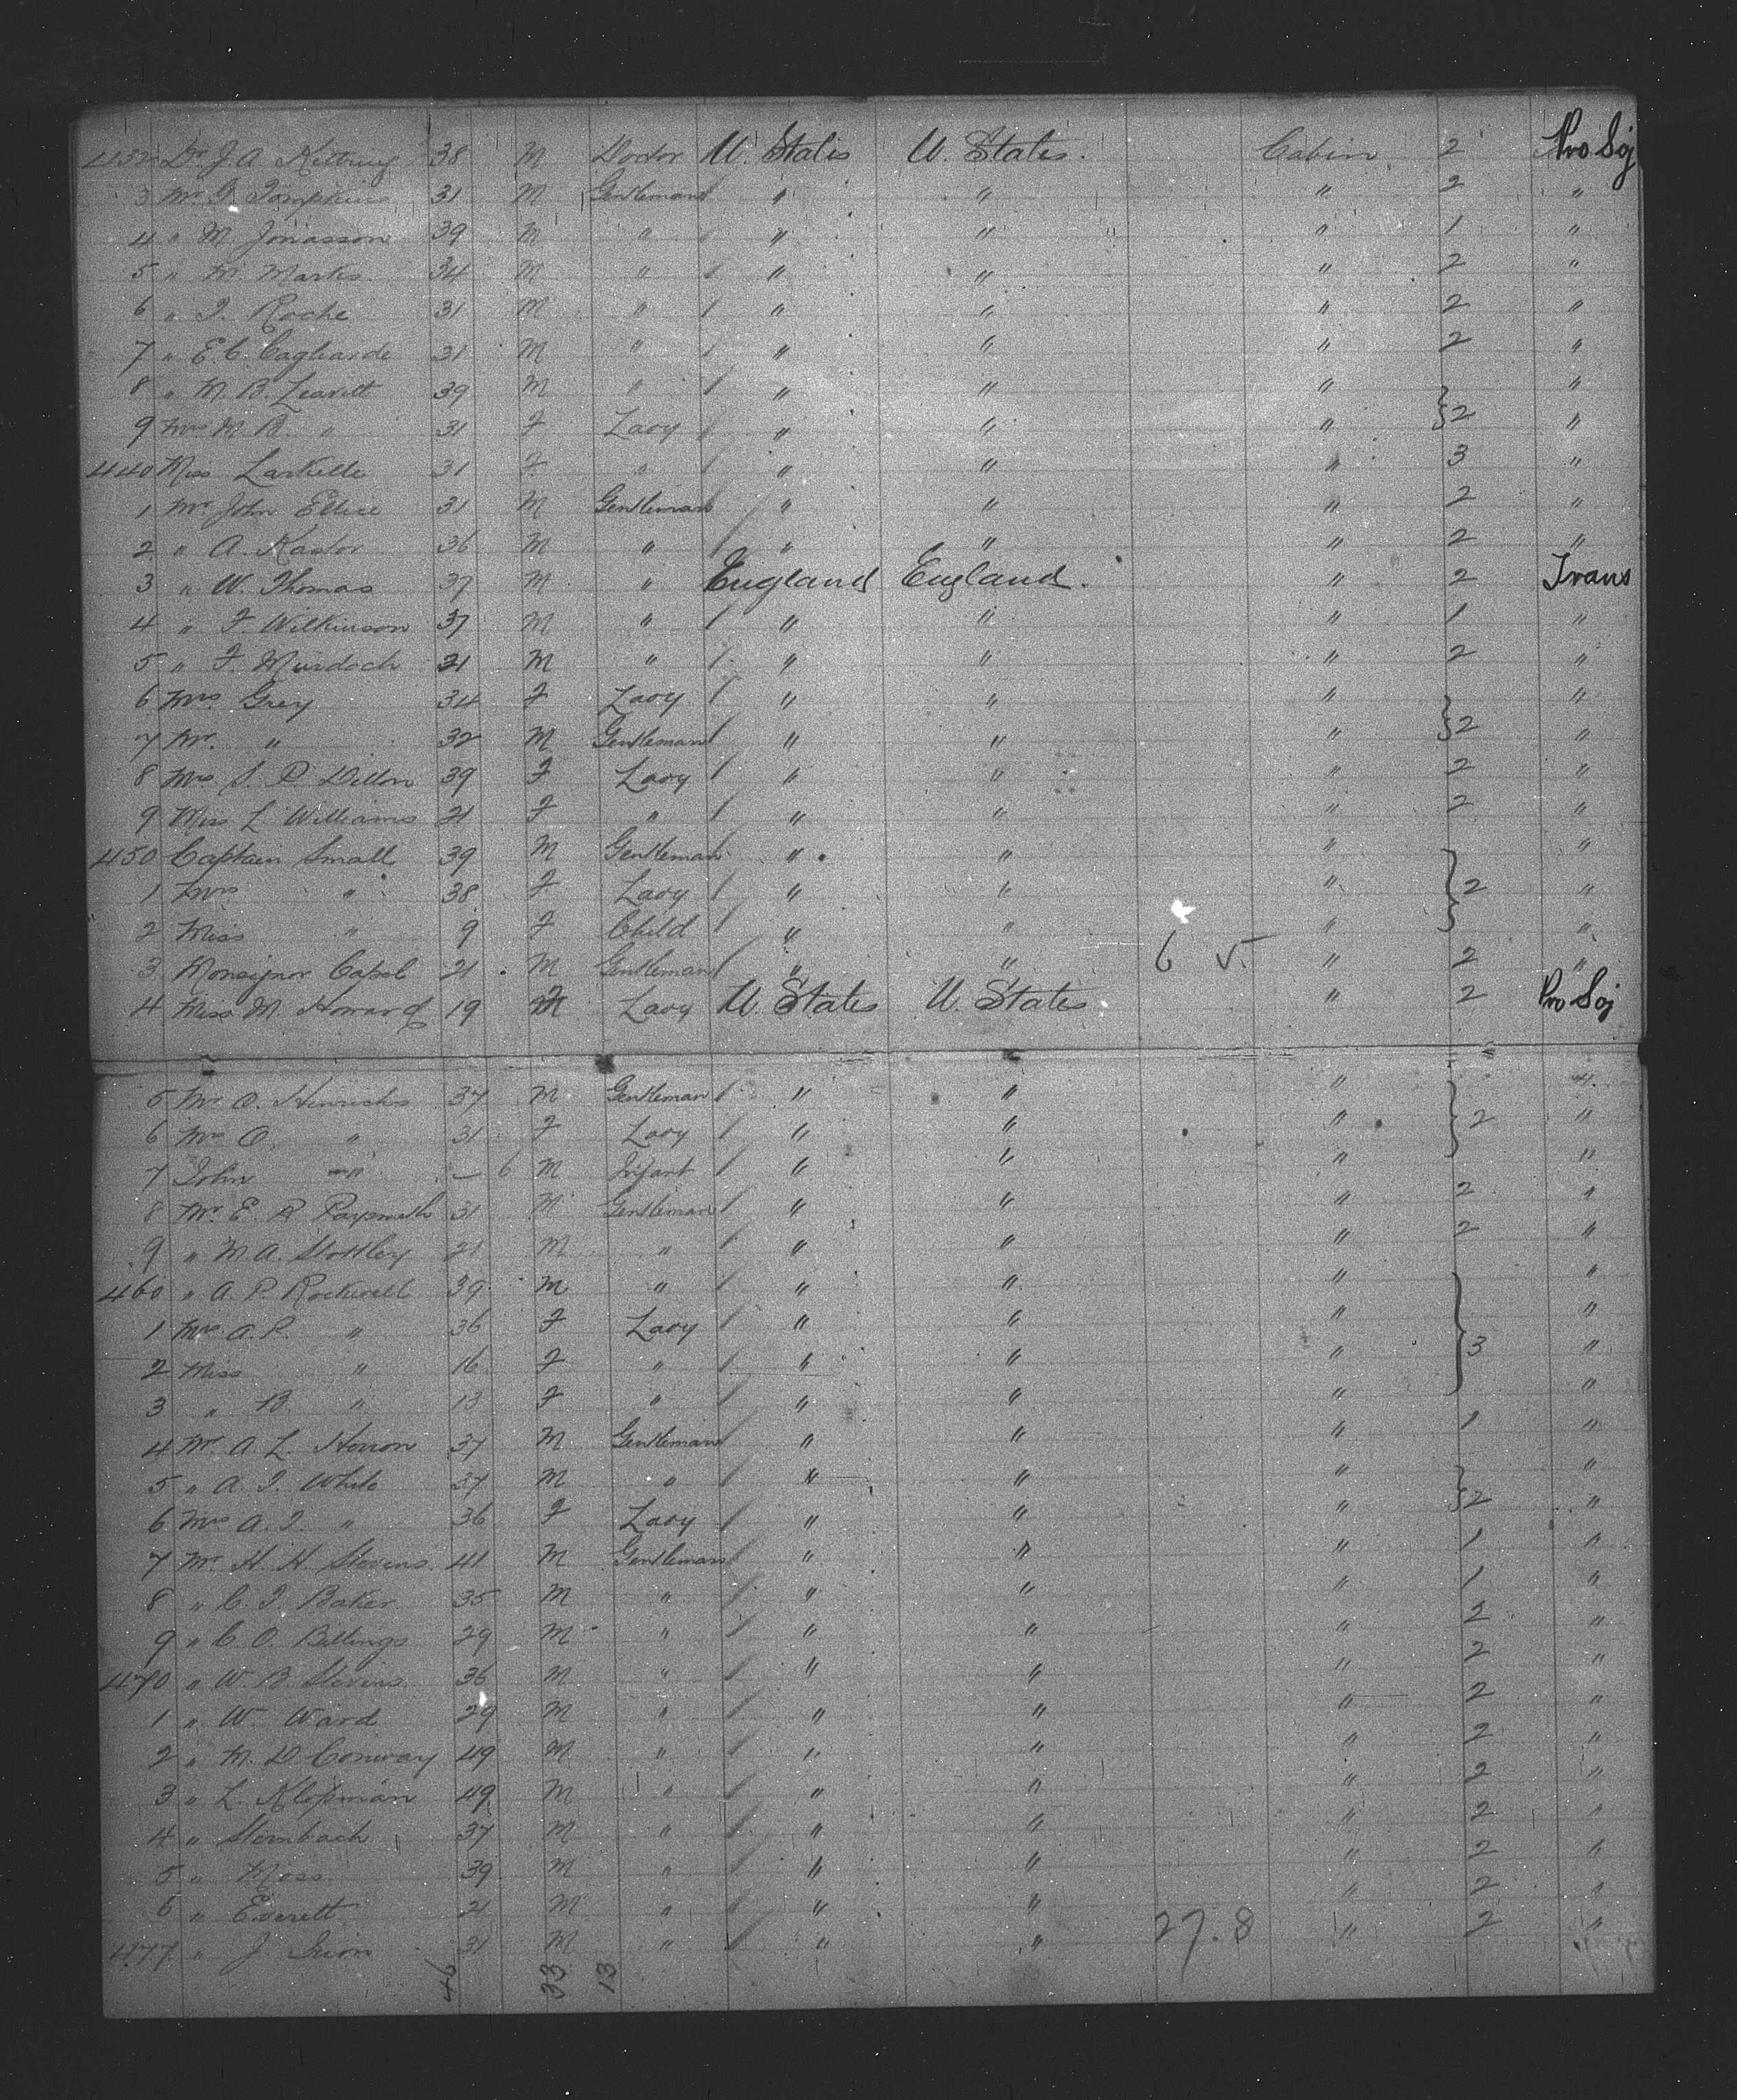 432 Dr J. A. Kittrung 38 M Doctor U. States U. States. Cabin 2 Pro Soj
3 Mr G. Tompkins 31 M Gentleman / " " " 2 "
4 " M Jonasson 39 M " / " " " 1 "
5 " M Marks 34 M " / " " " 2 "
6 " J. Roche 31 M " / " " " 2 "
7 " E. C. Cagliarde 31 M " / " " " 2 "
8 " M. B. Leavitt 39 M " / " " " "
9 Mrs M. B. " 31 F Lady / " " " } 2 "
440 Miss Larkelle 31 F " / " " " 3 "
1 Mr John Ellice 31 M Gentleman / " " " 2 "
2 " A. Kastor 36 M " / " " " 2 "
3 " W. Thomas 37 M " England England. " 2 Trans
4 " F. Wilkinson 37 M " / " " " 1 "
5 " F. Murdoch 21 M " / " " " 2 "
6 Mrs Grey 34 F Lady / " " " "
7 Mr. " 32 M Gentleman / " " " } 2 "
8 Mrs S. P. Dillon 39 F Lady / " " " 2 "
9 Miss L Williams 21 F " / " " " 2 "
450 Captain Small 39 M Gentleman " " " "
1 Mrs " 38 F Lady / " " " } 2 "
2 Miss " 9 F Child / " " " "
3 Monsignor Capel 21 M Gentleman / " " 6 V. " 2 "
4 Miss M. Howard 19 F Lady U. States U. States " 2 Pro Soj
5 Mr O. Hinrichs 37 M Gentleman / " " " "
6 Mrs O. " 31 F Lady / " " " } 2 "
7 John " — 6 M Infant / " " " "
8 Mr. E. R 31 M Gentleman / " " " 2 "
9 " M. A. Stottley 21 M " / " " " 2 "
460 " A. P. Rockwell 39 M " / " " " "
1 Mrs A. P. " 36 F Lady / " " " "
2 Miss " 16 F " / " " " } 3 "
3 " B. " 13 F " / " " " "
4 Mr. A. L. 37 M Gentleman / " " " 1 "
5 " A. J. White 37 M " / " " " "
6 Mrs A. J. " 36 F Lady / " " " } 2 "
7 Mr. H. H Stevens 41 M Gentleman / " " " 1 "
8 " C. J. Baker 35 M " / " " " 1 "
9 " C. O. Billings 29 M " / " " " 2 "
470 " W. B. Stevens 36 M " / " " " 2 "
1 " W. Ward 29 M " / " " " 2 "
2 " M. D. Conway 49 M " / " " " 2 "
3 " L. Klopman 49 M " / " " " 2 "
4 " Sternbach 37 M " / " " " 2 "
5 " Moss 39 M " / " " " 2 "
6 " Everett 21 M " / " " " 2 "
477 " J. 31 M " / " " 27. 8 " 2 "
46 33 13